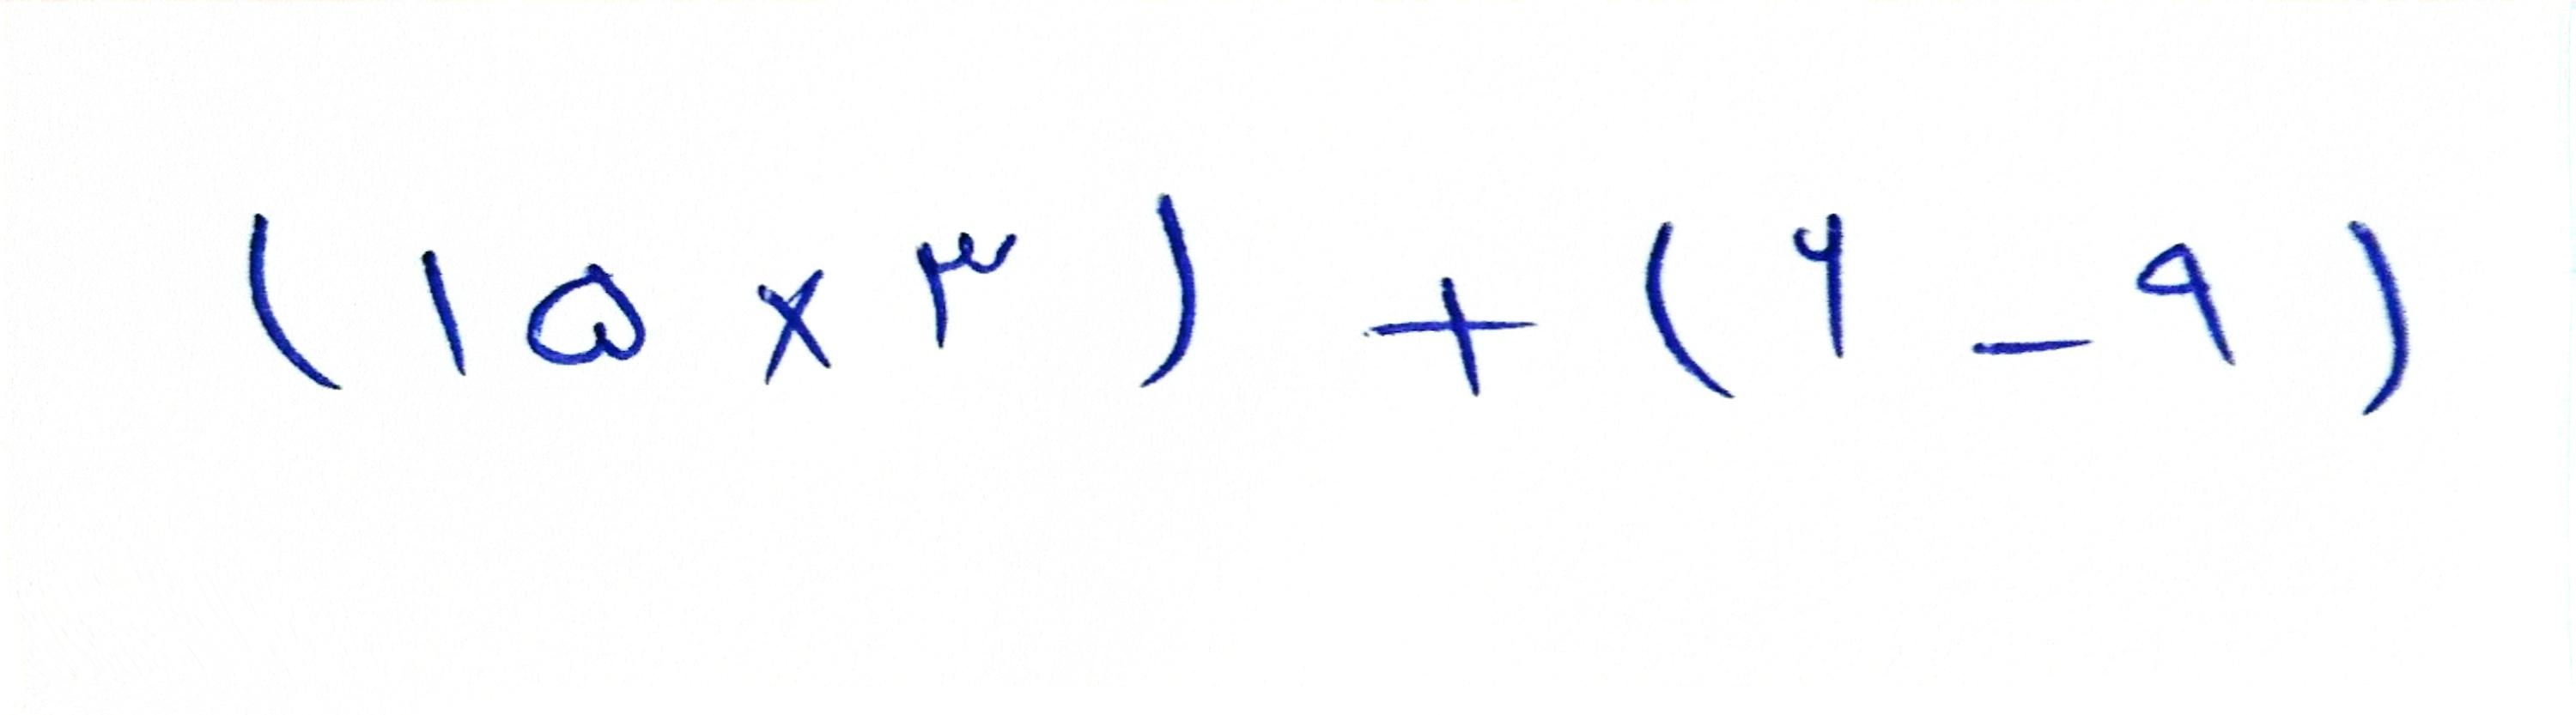 (۱۵ × ۳) + (۶ - ۹)